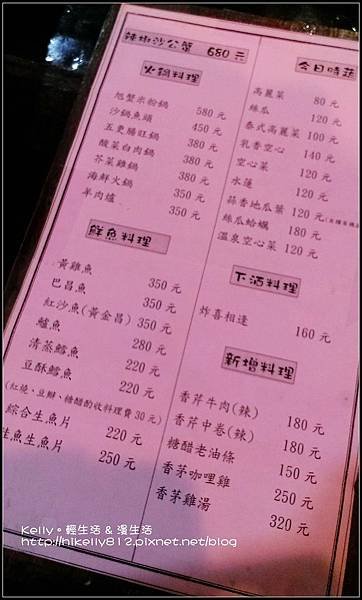 辣椒沙公蟹 680 元
火鍋料理
旭蟹米粉鍋 580 元
沙鍋魚頭 450 元
五更腸旺鍋 380 元
酸菜白肉鍋 380 元
芥菜雞鍋 380 元
海鮮火鍋 350 元
羊肉爐 350 元
鮮魚料理
黃雞魚 350 元
巴昌魚 350 元
紅沙魚(黃金昌) 350 元
鱸魚 280 元
清蒸鱈魚 220 元
豆酥鱈魚 220 元
(紅燒、豆瓣、糖醋酌收料理費 30 元)
綜合生魚片 220 元
魚生魚片 250 元
今日時蔬
高麗菜 80 元
絲瓜 120 元
泰式高麗菜 100 元
乳香空心 140 元
空心菜 120 元
水蓮 120 元
蒜香地瓜葉 120 元
絲瓜蛤蠣 180 元
溫泉空心菜 120 元
下酒料理
炸喜相逢 160 元
新增料理
香芹牛肉(辣) 180 元
香芹中卷(辣) 180 元
糖醋老油條 150 元
香茅咖哩雞 250 元
香茅雞湯 320 元
Kelly。輕生活 & 漫生活
http://nikelly812.pixnet.net/blog